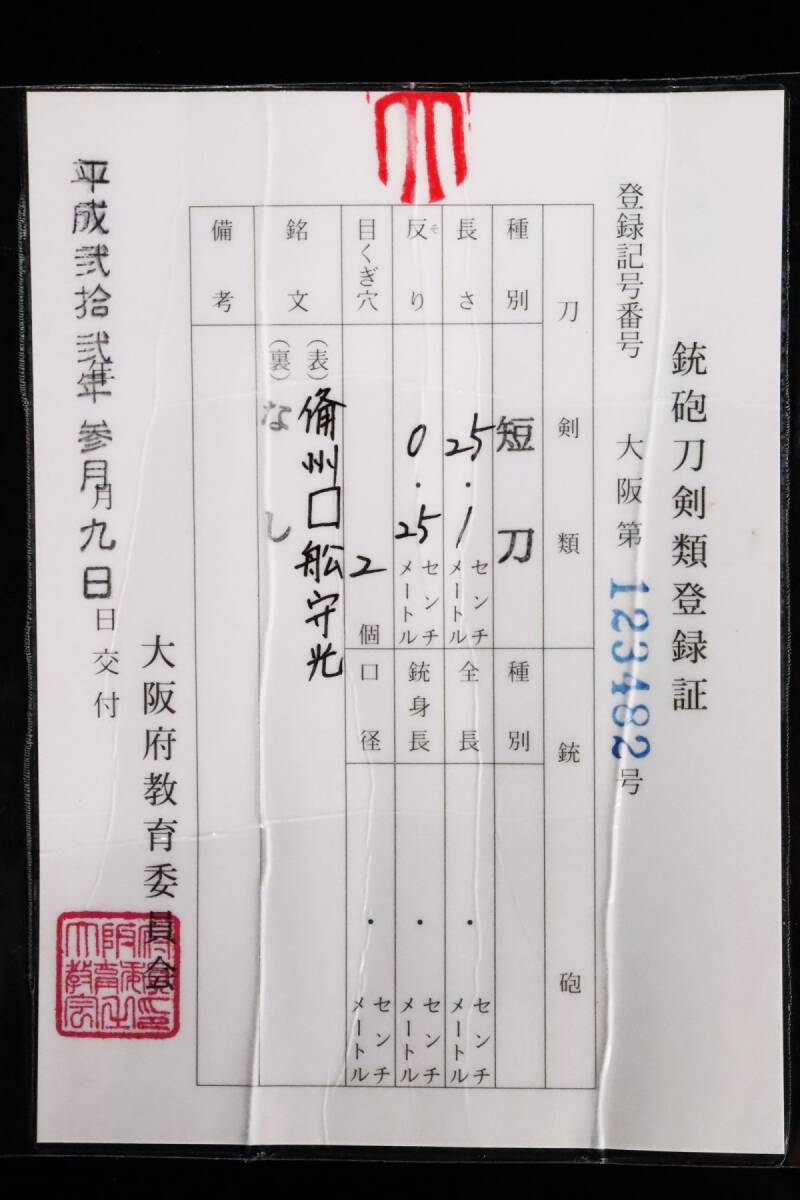 銃砲刀剣類登録証
登録記号番号 大阪第 123482 号
刀剣類
種別 短刀
長さ 25.1 センチメートル
反り 0.25 センチメートル
そ
目くぎ穴 2 個
銘文 (表) 俻州□舩守光
(裏) なし
備考
銃砲
種別
全長 . センチメートル
銃身長 . センチメートル
口径 . センチメートル
平成弐拾弐年年参月月九日日交付
大阪府教育委員会